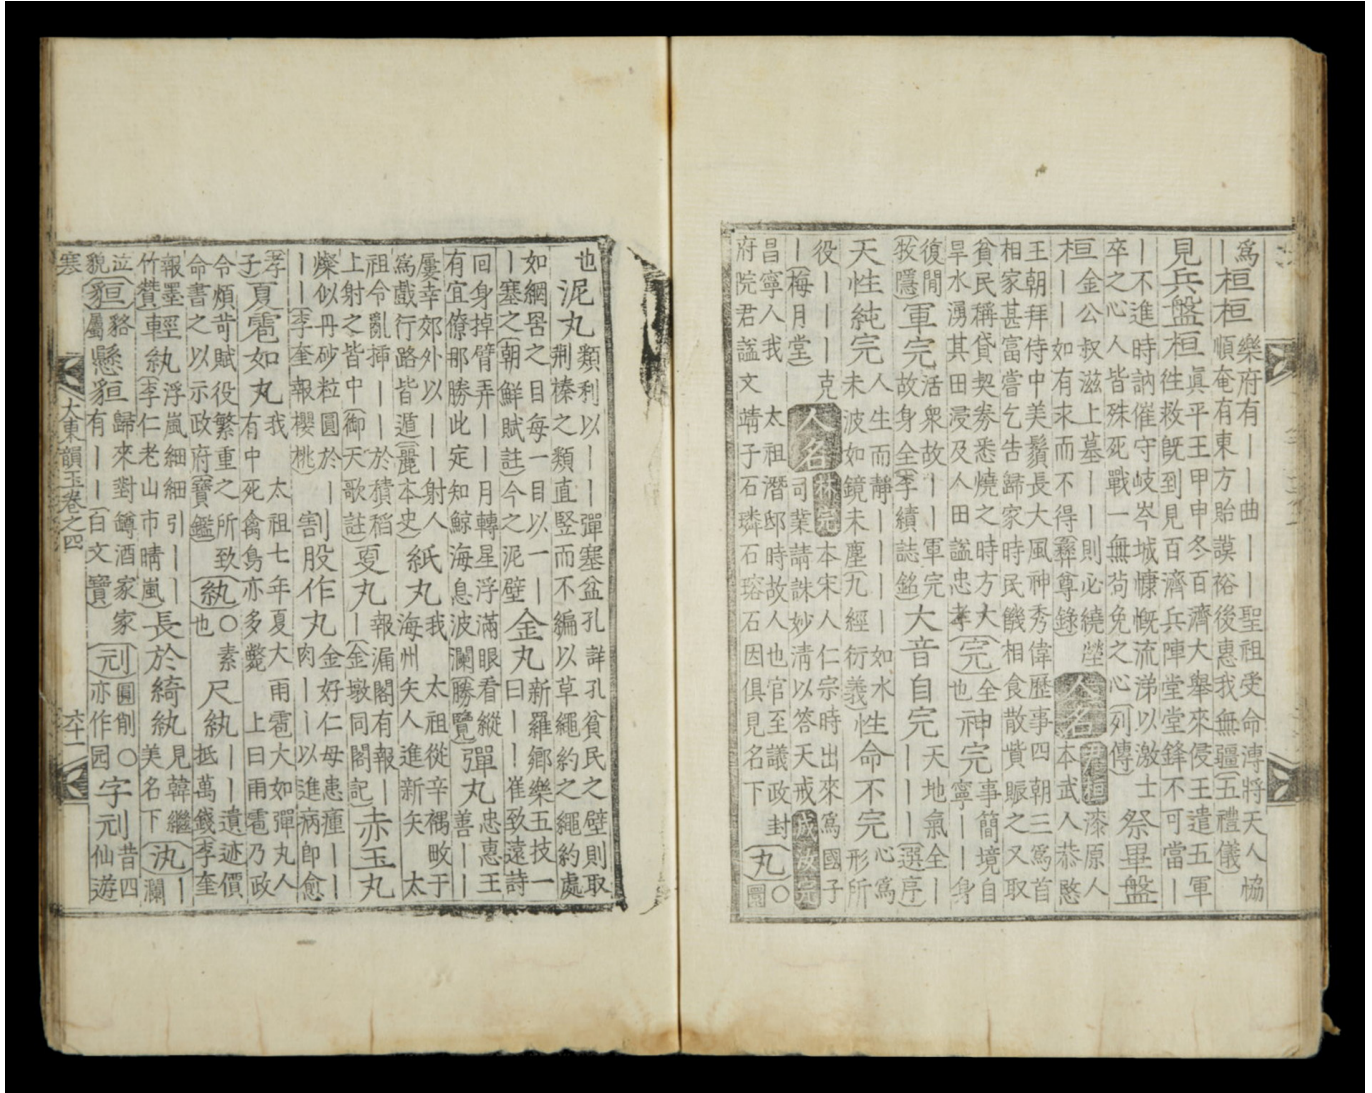 為桓桓樂府有｜｜曲｜｜｜聖祖受命溥將天人恊
｜順奄有東方貽謨裕後惠我無疆(五禮儀)
見兵盤桓眞平王甲申冬百濟大舉來侵王遣五軍
往救旣到見百濟兵陣堂堂鋒不可當｜
｜不進時訥催守岐岑城慷慨流涕以激士
卒之心人皆殊死戰一無苟免之心(列傳)祭畢盤
桓金公叔滋上墓｜｜則必繞塋
｜｜如有來而不得(彛尊錄)人名尹桓本漆原人
武人恭愍
王朝拜侍中美鬚長大風神秀偉歷事四朝三為首
相家甚富嘗乞告歸家時民饑相食散貲賑之又取
貧民稱貸契券悉燒之時方大
旱水湧其田浸及人田謚忠孝(完)全也神完事簡境自
寧｜｜身
復閒
(牧隱)軍完活衆故｜｜軍完
故身全(李續誌銘)大音自完天地氣全｜
｜｜｜(選序)
天性純完人生而靜｜｜｜｜如水
未波如鏡未塵(九經衍義)性命不完心為
形所
役｜｜｜｜克
｜(梅月堂)人名林完本宋人仁宗時出來為國子
司業請誅妙清以答天戒成汝完
昌寧人我 太祖潛邸時故人也官至議政封
府院君謚文靖子石璘石瑢石因俱見名下(丸)○圜
也泥丸類利以｜｜彈塞盆孔謂孔貧民之壁則取
荆榛之類直竪而不編以草繩約之繩約處
如網罟之目每一目以一｜
｜塞之(朝鮮賦註)今之泥壁金丸新羅鄉樂五技一
曰｜｜崔致遠詩
回身掉臂弄｜｜月轉星浮滿眼看縱
有宜僚那勝此定知鯨海息波瀾(勝覽)彈丸忠惠王
善｜｜
屢幸郊外以｜｜射人
為戲行路皆遁(麗本史)紙丸我 太祖從辛禑畋于
海州矢人進新矢 太
祖令亂揷｜｜於積稻
上射之皆中(御天歌註)夏丸報漏閣有報｜
｜(金墩同閣記)赤玉丸
燦似丹砂粒圓於｜
｜｜(李奎報櫻桃)割股作丸金好仁母患瘇｜
肉｜｜以進病卽愈
(孝子)夏雹如丸我 太祖七年夏大雨雹大如彈丸人
有中死禽鳥亦多斃 上曰雨雹乃政
令煩苛賦役繁重之所致
命書之以示政府(寶鑑)(紈)○素也尺紈｜｜遺迹價
抵萬錢(李奎
報墨
竹贊)輕紈浮嵐細細引｜｜
(李仁老山市晴嵐)長於綺紈見韓繼｜
美名下(汍)瀾
泣貌(貆)貉屬懸貆歸來對鱒酒家家
有｜｜(白文寶)(刓)圓削○
亦作园字刓昔四
仙遊
寒 大東韻玉卷之四 六十一